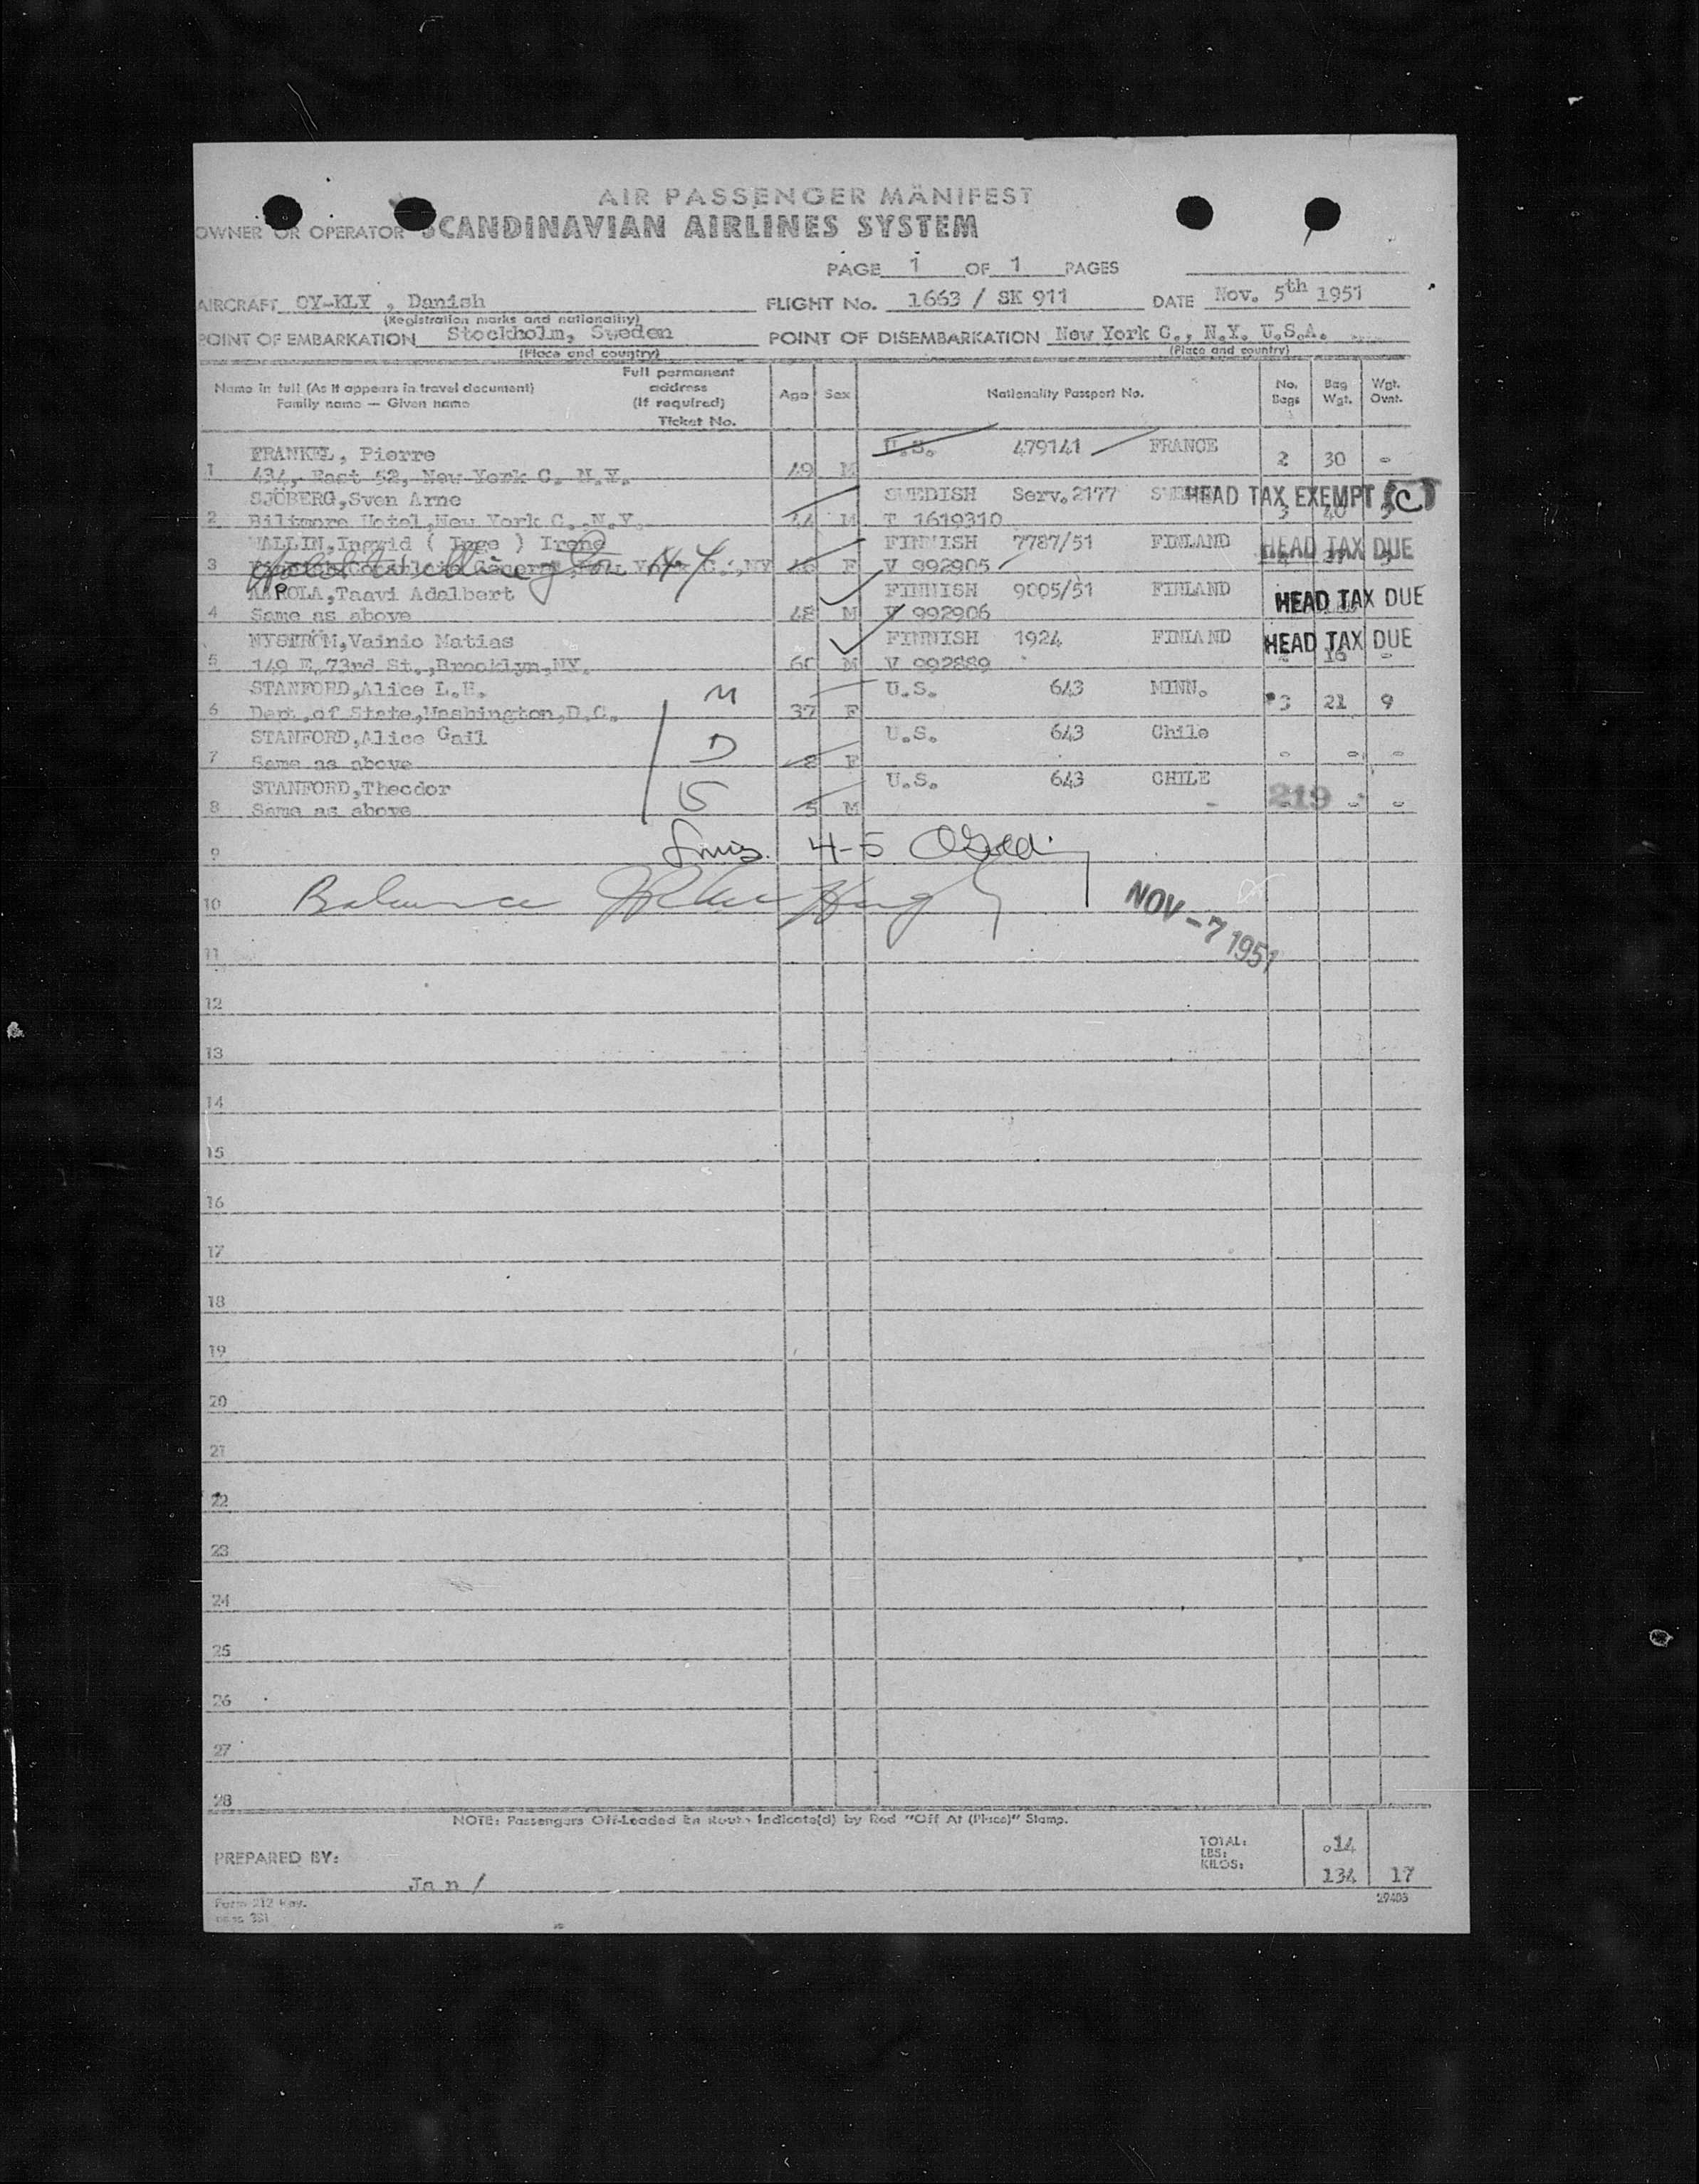 AIR PASSENGER MANIFEST
OWNER OR OPERATOR SCANDINAVIAN AIRLINES SYSTEM
PAGE 1 OF 1 PAGES
AIRCRAFT OY-KLY , Danish FLIGHT No. 1663 / SK 911 DATE Nov. 5th 1951
(Registration marks and nationality)
POINT OF EMBARKATION Stockholm, Sweden POINT OF DISEMBARKATION New York C., N.Y. U.S.A.
(Place and country) (Place and country)
Name in full (As it appears in travel document) Family name — Given name Full permanent address (If required) Ticket No. Age Sex Nationality Passport No. No. Bags Bag Wgt. Wgt. Ovnt.
FRANKEL, Pierre U.S. 479141 FRANCE
1 434, East 52, New York C. N.Y. 49 M 2 30 -
SJÖBERG,Sven Arne SWEDISH Serv.2177 HEAD TAX EXEMPT C
2 Biltmore Hotel,New York C.,N.Y. 44 M T 1619310 40
WALLIN,Ingrid ( Inge ) Irene FINNISH 7787/51 FINLAND HEAD TAX DUE
3 New York C.,NY F V 992905
KAROLA,Taavi Adalbert FINNISH 9005/51 FINLAND HEAD TAX DUE
4 Same as above 48 M V 992906
NYSTRÖM,Vainio Matias FINNISH 1924 FINLAND HEAD TAX DUE
5 149 E.73rd St.,Brooklyn,NY. 60 M V 992889 16 -
STANFORD,Alice L.H. M U.S. 643 MINN.
6 Dept.of State,Washington,D.C. 37 F 3 21 9
STANFORD,Alice Gail D U.S. 643 Chile
7 Same as above 8 F - - -
STANFORD,Theodor S U.S. 643 CHILE
8 Same as above 5 M 219 - -
9 4-5
10 Balance
NOV -7 1951
11
12
13
14
15
16
17
18
19
20
21
22
23
24
25
26
27
28
NOTE: Passengers Off-Loaded En Route Indicate(d) by Red "Off At (Place)" Stamp.
PREPARED BY: Jan/
TOTAL: 14
LBS:
KILOS: 134 17
Form 212 Rev.
29403